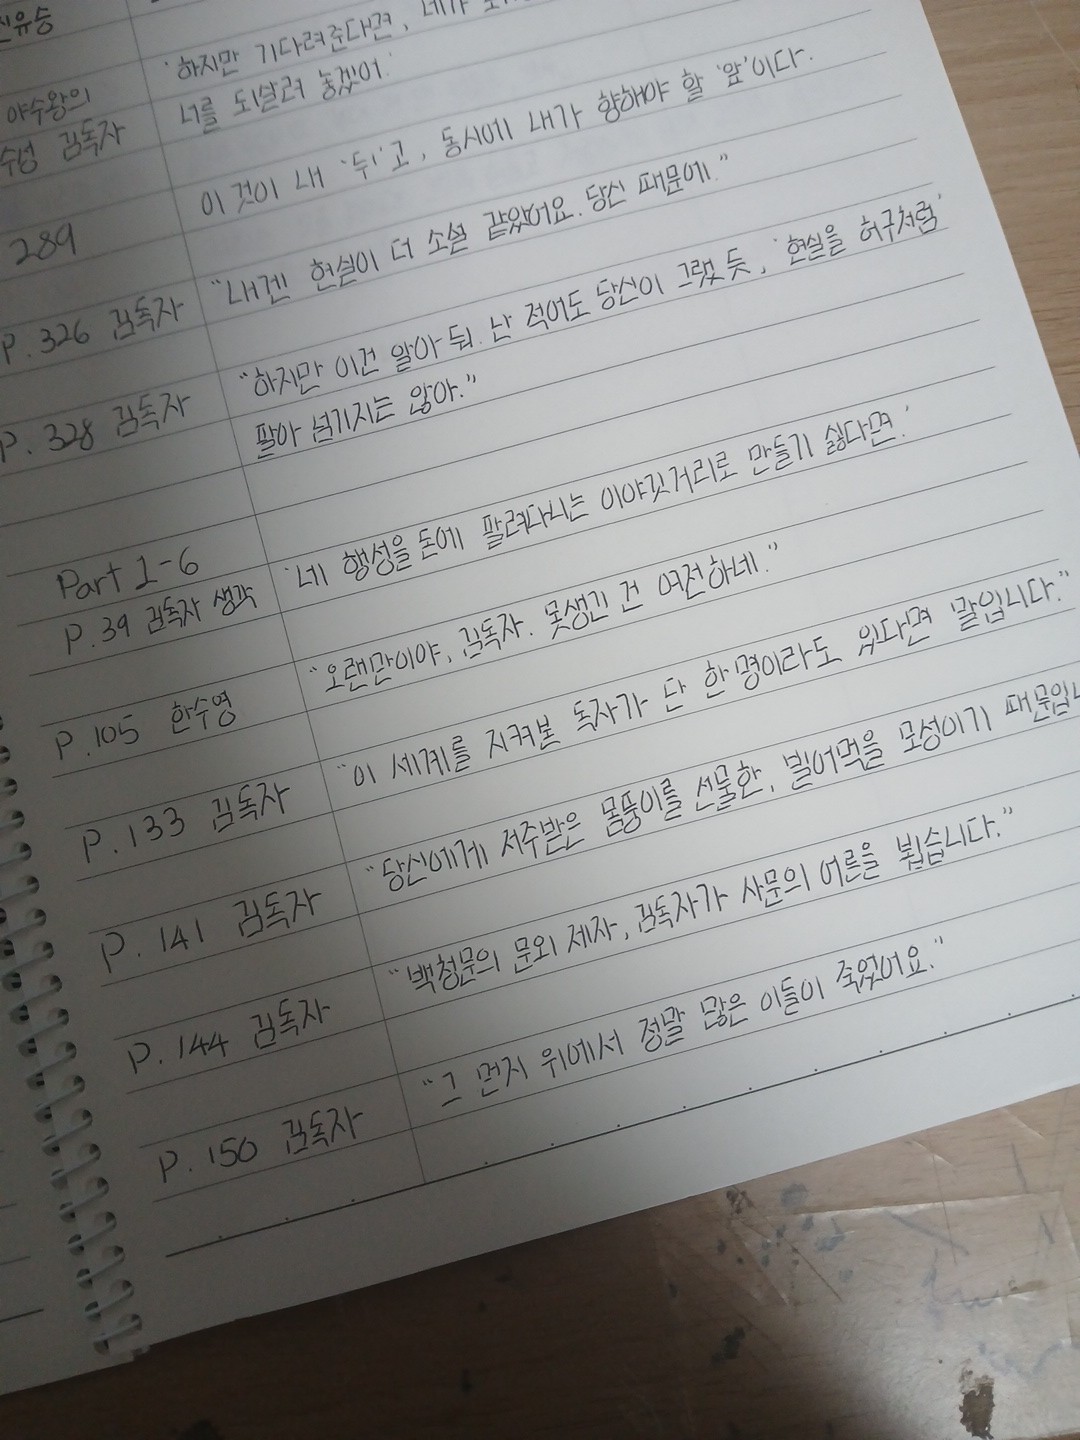 진유승
'하지만 기다려준다면, 네가
야수왕의
너를 되살려 놓겠어.'
수성 김독자
이것이 내 '뒤'고, 동시에 내가 향해야 할 '앞'이다.
289
"내겐 현실이 더 소설 같았어요. 당신 때문에."
P. 326 김독자
"하지만 이건 알아 둬. 난 적어도 당신이 그랬듯, '현실을 허구처럼'
P. 328 김독자
팔아 넘기지는 않아."
Part 1-6
'네 행성을 돈에 팔려다니는 이야깃거리로 만들기 싫다면.'
P. 39 김독자 생각
"오랜만이야, 김독자. 못생긴 건 여전하네."
P. 105 한수영
"이 세계를 지켜본 독자가 단 한 명이라도 있다면 말입니다."
P. 133 김독자
"당신에게 저주받은 몸뚱이를 선물한, 빌어먹을 모성이기 때문입니
P. 141 김독자
"백청문의 문외 제자, 김독자가 사문의 어른을 뵙습니다."
P. 144 김독자
"그 먼지 위에서 정말 많은 이들이 죽었어요."
P. 150 김독자